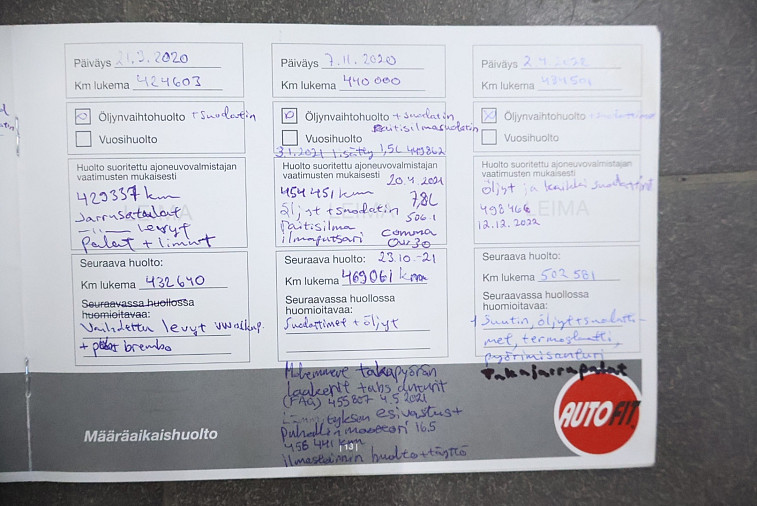 Päiväys 21.3.2020
Km lukema 424603
Öljynvaihtohuolto +suodatin
Vuosihuolto
Huolto suoritettu ajoneuvovalmistajan
vaatimusten mukaisesti
429337 km
Jarrusatulat
levyt
Palat + limut
Seuraava huolto:
Km lukema 432640
Seuraavassa huollossa
huomioitavaa:
Vaihdettu levyt
+ brembo
Määräaikaishuolto
Päiväys 7.11.2020
Km lukema 440 000
Öljynvaihtohuolto +suodatin
Vuosihuolto raitisilmasuodatin
3.1.2021 lisätty 1,5L 449862
Huolto suoritettu ajoneuvovalmistajan
vaatimusten mukaisesti 20.4 2021
454 451 km 7,8L
öljyt + suodatin 506.1
Raitisilma comma
ilmaputsari 0W30
Seuraava huolto: 23.10.-21
Km lukema 469061 km
Seuraavassa huollossa
huomioitavaa:
Suodattimet + öljyt
Molemmat takapyörän
laakerit + abs anturit
(FAG) 455807 4.5 2021
esivastus +
Puhallinmoottori 16.5
456 441 km
ilmastoinnin huolto + täyttö
|13|
Päiväys
Km lukema
Öljynvaihtohuolto +suodattimet
Vuosihuolto
Huolto suoritettu ajoneuvovalmistajan
vaatimusten mukaisesti
öljyt ja kaikki suodattimet
LEIMA
498466
12.12.2022
Seuraava huolto:
Km lukema 502 581
Seuraavassa huollossa
huomioitavaa:
+ Suutin, öljyt+suodatti-
met, termostaatti,
pyörimisanturi
Takajarrupalat
AUTOFIT